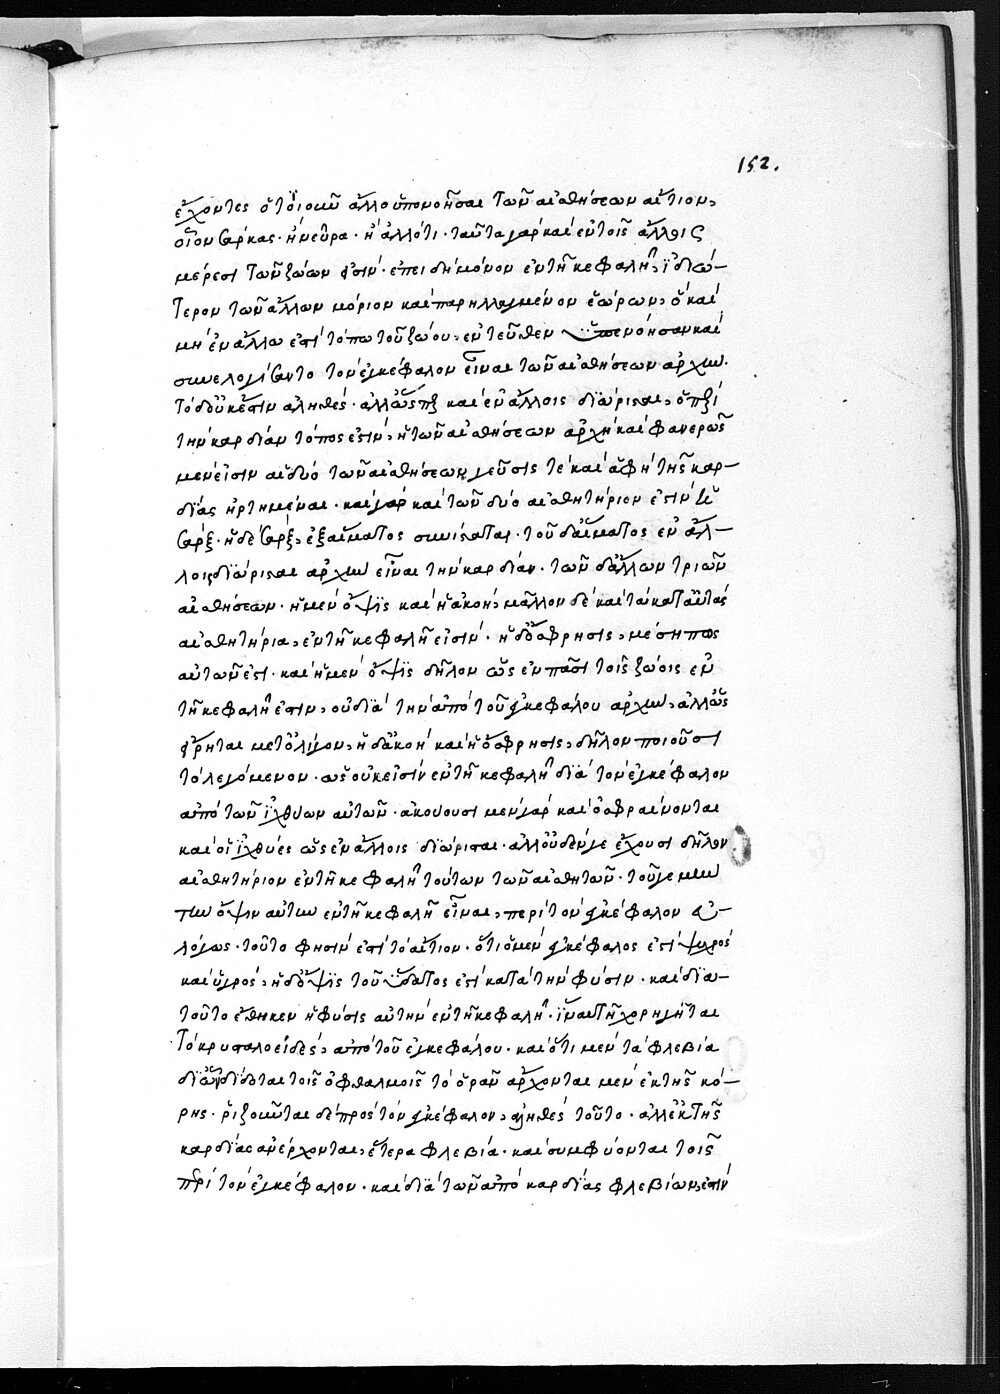 152.
ἔχοντες ὅ τῷ οἰκεῖ ἄλλο ὑπονοῆσαι τῶν αἰσθήσεων αἴτιον,
οἷον σάρκας· ἢ νεῦρα· ἢ ἄλλό τι· ταῦτα γὰρ καὶ ἐν τοῖς ἄλλοις
μέρεσι τῶν ζώων ἐστίν· ἐπεὶ δὴ μόνον ἐν τῇ κεφαλῇ, ἰδιώ-
τερον τῶν ἄλλων μόριον καὶ παρηλλαγμένον ἑώρων, ὃ καὶ
μὴ ἐν ἄλλω ἐστὶ τόπω τοῦ ζώου, ἐντεῦθεν ὑπενόησαν καὶ
συνελογίσαντο τὸν ἐγκέφαλον εἶναι τῶν αἰσθήσεων ἀρχήν·
τὸ δ' οὐκ ἔστιν ἀληθές· ἀλλ' ὥσπερ καὶ ἐν ἄλλοις διώρισται, ὁ περὶ
τὴν καρδίαν τόπος ἐστὶν, ἡ τῶν αἰσθήσεων ἀρχὴ καὶ φανερῶς
μέν εἰσιν αἱ δύο τῶν αἰσθήσεων, γεῦσις τὲ καὶ ἁφὴ τῆς καρ-
δίας ἠρτημέναι· καὶ γὰρ καὶ τῶν δύο αἰσθητήριον ἐστὶν ἡ
σάρξ· ἡ δὲ σάρξ, ἐξ αἵματος συνίσταται· τοῦ δ' αἵματος ἐν ἄλ-
λοις διώρισται ἀρχὴν εἶναι τὴν καρδίαν· τῶν δ' ἄλλων τριῶν
αἰσθήσεων· ἡ μὲν ὄψις καὶ ἡ ἀκοὴ, μᾶλλον δὲ καὶ τὰ κατ' αὐτὰς
αἰσθητήρια, ἐν τῇ κεφαλῇ εἰσίν· ἡ δ' ὄσφρησις, μέση πως
αὐτῶν ἐστί· καὶ ἡ μὲν ὄψις δῆλον ὡς ἐν πᾶσι τοῖς ζώοις ἐν
τῇ κεφαλῇ ἐστὶν, οὐ διὰ τὴν ἀπὸ τοῦ ἐγκεφάλου ἀρχὴν, ἀλλ' ὡς
εἴρηται μετ' ὀλίγον, ἡ δ' ἀκοὴ καὶ ἡ ὄσφρησις, δῆλον ποιοῦσι
τὸ λεγόμενον· ὡς οὐκ εἰσὶν ἐν τῇ κεφαλῇ διὰ τὸν ἐγκέφαλον
ἀπὸ τῶν ἰχθύων αὐτῶν· ἀκούουσι μὲν γὰρ καὶ ὀσφραίνονται
καὶ οἱ ἰχθύες ὡς ἐν ἄλλοις διώρισται· ἀλλ' οὐδέν γε ἔχουσι δῆλον
αἰσθητήριον ἐν τῇ κεφαλῇ τούτων τῶν αἰσθητῶν· τοῦ γε μὴν
τὴν ὄψιν αὐτὴν ἐν τῇ κεφαλῇ εἶναι, περὶ τὸν ἐγκέφαλον εὐ-
λόγως· τοῦτο φησὶν ἐστὶ τὸ αἴτιον· ὅτι ὁ μὲν ἐγκέφαλος ἐστὶ ψυχρὸς
καὶ ὑγρὸς, ἡ δ' ὄψις τοῦ ὕδατος ἐστὶ κατὰ τὴν φύσιν· καὶ δια-
τοῦτο ἔθηκεν ἡ φύσις αὐτὴν ἐν τῇ κεφαλῇ· ἵν' αὐτῇ χορηγῆται
τὸ κρυσταλοειδὲς, ἀπὸ τοῦ ἐγκεφάλου· καὶ ὅτι μὲν τὰ φλεβία
δι' ὧν δίδοται τοῖς ὀφθαλμοῖς τὸ ὁρᾶν ἄρχονται μὲν ἐκ τῆς κό-
ρης· ῥιζοῦνται δὲ πρὸς τὸν ἐγκέφαλον, ἀληθὲς τοῦτο· ἀλλ' ἐκ τῆς
καρδίας ἀνέρχονται, ἕτερα φλεβία· καὶ συμφύονται τοῖς
περὶ τὸν ἐγκέφαλον· καὶ διὰ τῶν ἀπὸ καρδίας φλεβίων, ἐστὶν